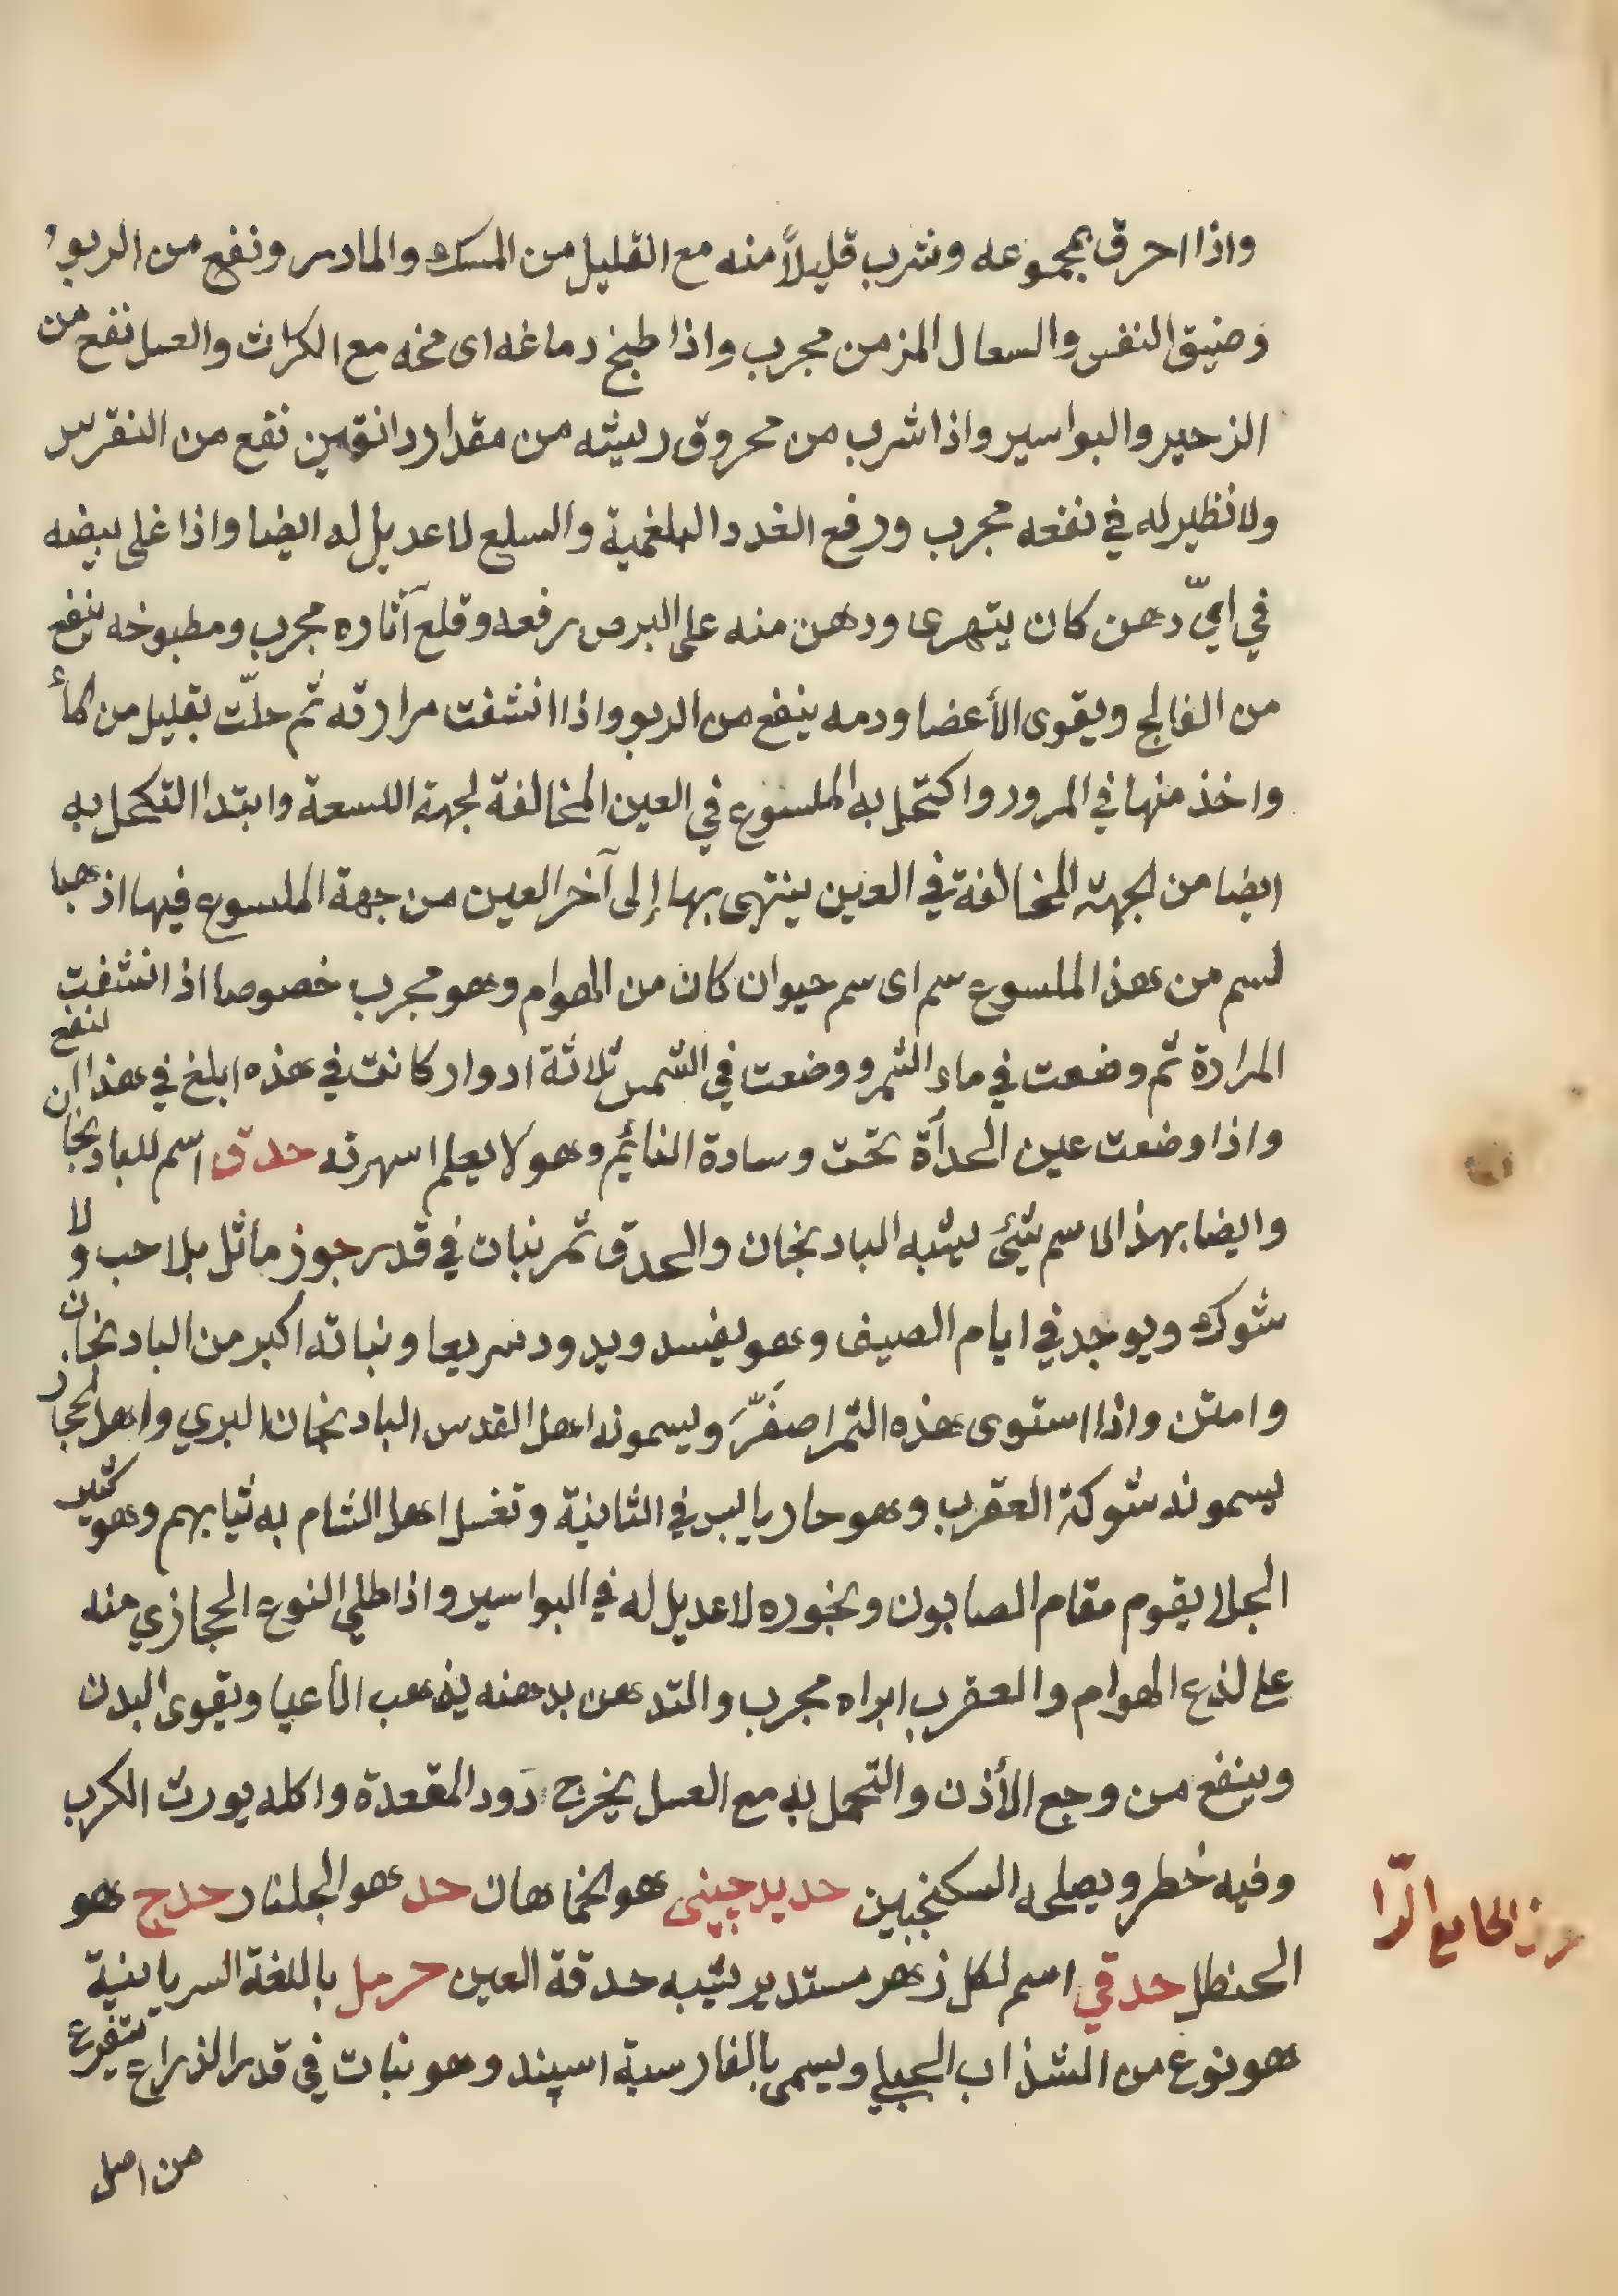 واذا احرق بمجموعه وشرب قليلاً منه مع القليل من المسك والماد س ونفع من الربو
وضيق النفس والسعال المزمن مجرب واذا طبخ دماغه اى مخه مع الكراث والعسل نفع من
الزحير والبواسير واذا شرب من محروق ريشه من مقدار دانقين نفع من النقرس
ولا نظير له في نفعه مجرب ورفع الغدد البلغمية والسلع لا عديل له ايضا واذا غلى بيضه
في ايّ دهن كان يتهرى ودهن منه على البرص رفعه وقلع آثاره مجرب ومطبوخه ينفع
من الفالج ويقوى الأعضا ودمه ينفع من الربو واذا انشفت مرارته ثم حلّت بقليل من كمأ
واخذ منها في المرور واكتحل به الملسوع في العين المخالفة لجهة اللسعة وابتدا التكحل به
ايضا من لجهته المخالفة في العين ينتهى بها إلى آخر العين من جهة الملسوع فيها اذهبا
لسم من هذ الملسوع سم اى سم حيوان كان من الهوام وهو مجرب خصوصا اذ انشفت
المرارة ثم وضعت في ماء الثمر ووضعت في الشمس ثلاثة ادوار كانت في هذه ابلغ في هذا النفع ان
واذا وضعت عين الحدأة تحت وسادة النائم وهو لا يعلم اسهرته حدق اسم للبادنجا
وايضا بهذ الاسم شئ يشبه البادنجان والحدق ثمر نبات في قدر جوز ماثل بلا حب ولا
شوك ويوجد في ايام الصيف وهو يفسد ويدود سريعا ونباته اكبر من البادنجان
وامتن واذا استوى هذه الثمر اصفرَّ ويسمونه اهل القدس البادنجان البري واهل الحجاز
يسمونه شوكة العقرب وهو حار يابس في الثانية وتغسل اهل الشام به ثيابهم وهو كثير
الجلا يقوم مقام الصابون وبخوره لا عديل له في البواسير واذا طلى النوع الحجازي منه
على لذع الهوام والعقرب ابراه مجرب والتدهن بدهنه يذهب الأعيا ويقوى البدن
وينفع من وجع الأذن والتحمل به مع العسل يخرج دود المقعدة واكله يورث الكرب
وفيه خطر ويصلحه السكنجبين حديد چينى هو الخماهان حد هو الجلنار حدج هو
الحنظل حدقي اسم لكل زهر مستدير يشبه حدقة العين حرمل باللغة السريانية
هو نوع من الشذاب الجبلي ويسمى بالفارسية اسپند وهو نبات في قدر الذراع يتفرع
من اصل